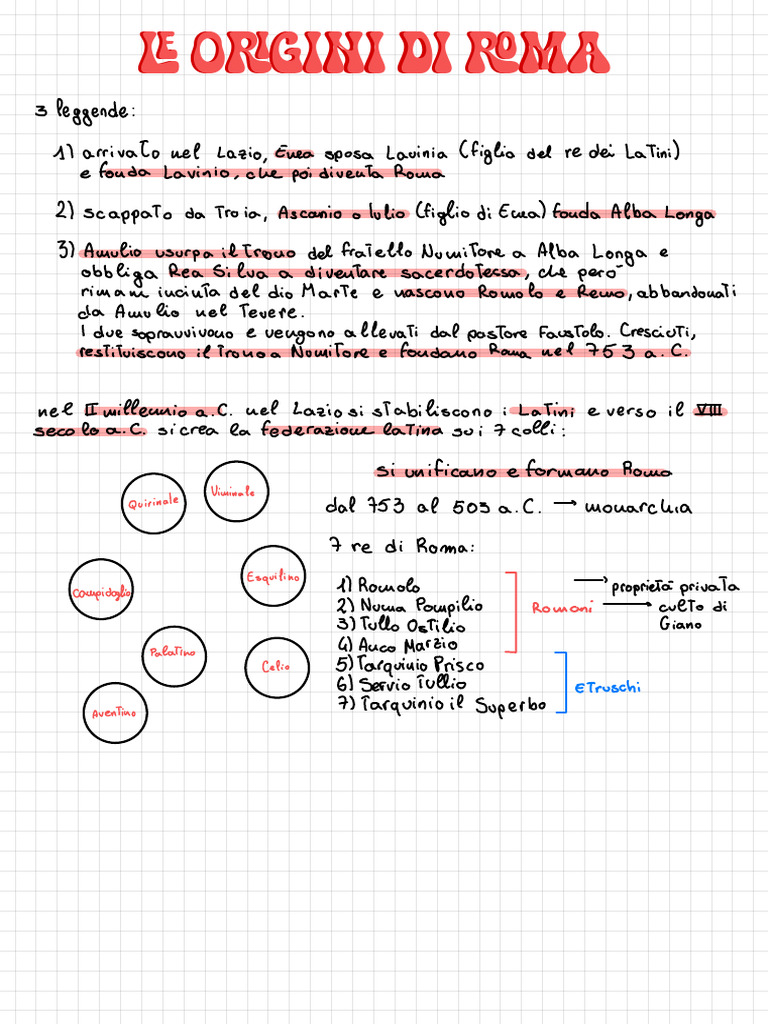 LE ORIGINI DI ROMA
3 leggende:
1) arrivato nel Lazio, Enea sposa Lavinia (figlia del re dei Latini)
e fonda Lavinio, che poi diventa Roma
2) scappato da Troia, Ascanio o Iulio (figlio di Enea) fonda Alba Longa
3) Amulio usurpa il trono del fratello Numitore a Alba Longa e
obbliga Rea Silva a diventare sacerdotessa, che però
rimani incinta del dio Marte e nascono Romolo e Remo, abbandonati
da Amulio nel Tevere.
I due sopravvivono e vengono allevati dal pastore Faustolo. Cresciuti,
restituiscono il trono a Numitore e fondano Roma nel 753 a.C.
nel II millennio a.C. nel Lazio si stabiliscono i Latini e verso il VIII
secolo a.C. si crea la federazione latina sui 7 colli:
si unificano e formano Roma
Quirinale
Viminale
Esquilino
Campidoglio
Palatino
Celio
Aventino
dal 753 al 503 a.C. → monarchia
7 re di Roma:
1) Romolo
2) Numa Pompilio
3) Tullo Ostilio
4) Anco Marzio
5) Tarquinio Prisco
6) Servio Tullio
7) Tarquinio il Superbo
Romani
→ proprietà privata
→ culto di
Giano
Etruschi